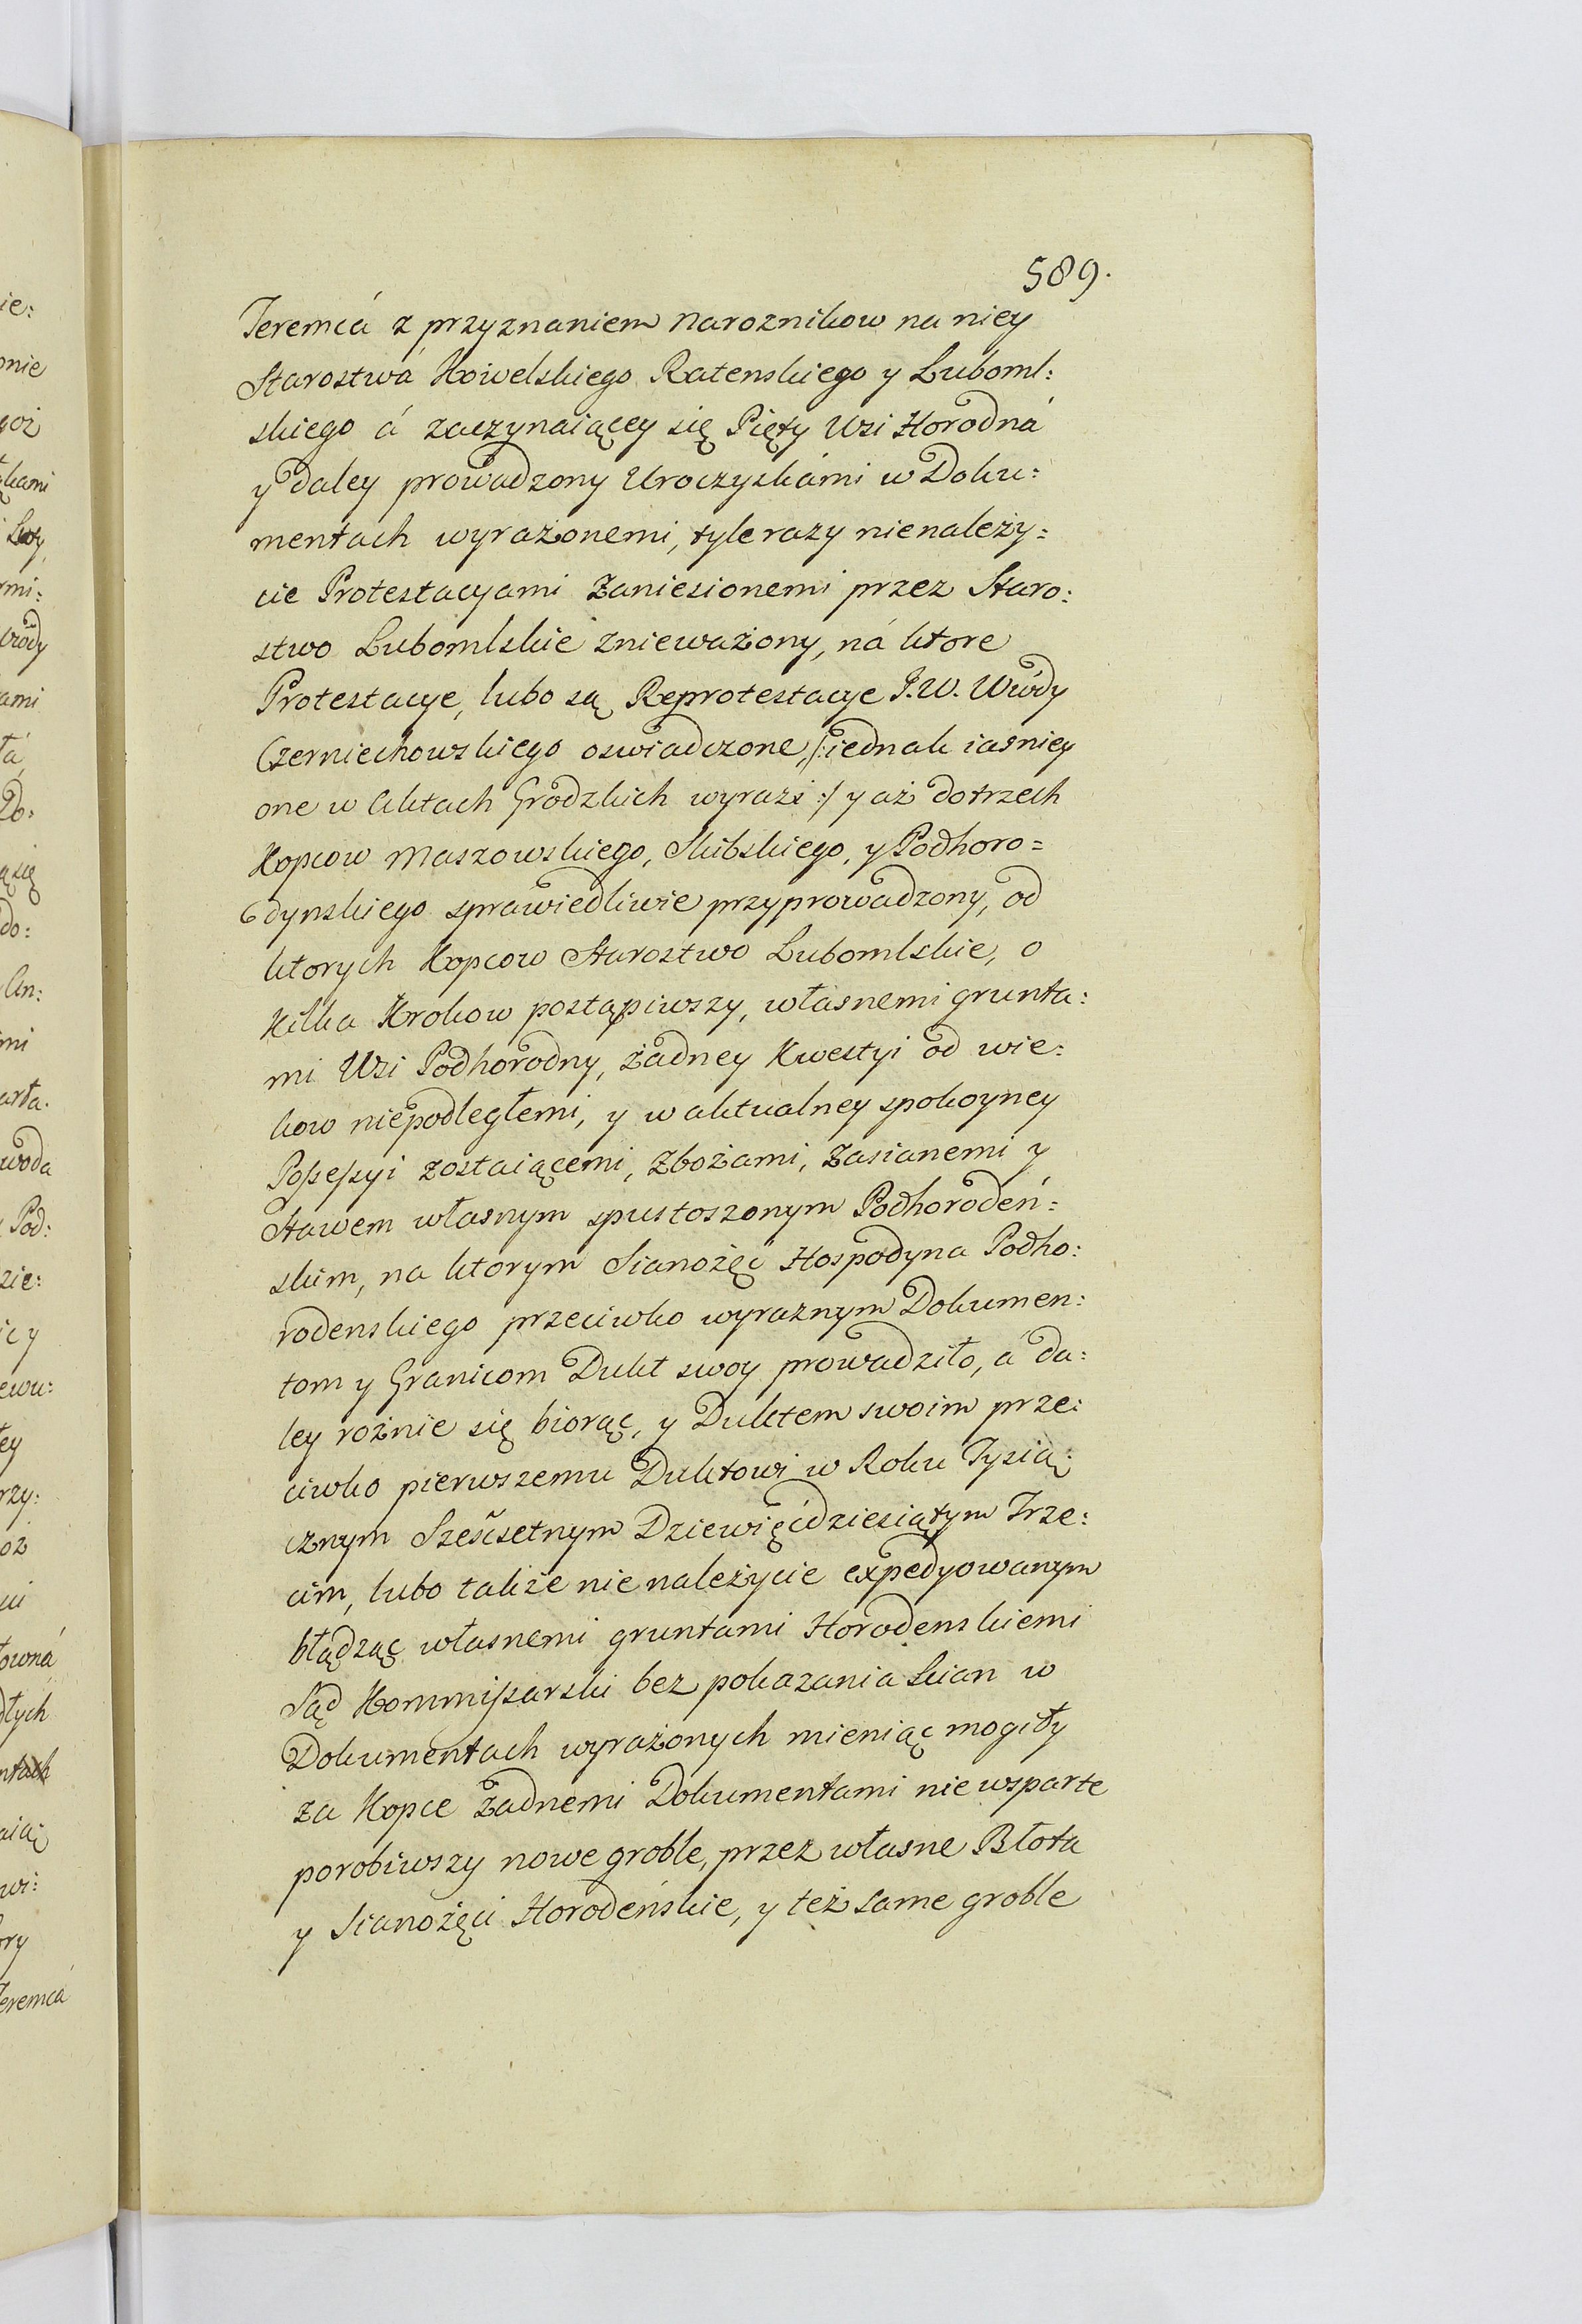 589.
Jeremcá z przyznaniem Naroznikow na niey
Starostwá Kowelskiego Ratenskiego y Luboml:
skiego á zaczynaiącey się Pięty Wsi Horodná
y daley prowadzony Uroczyskámi w Doku:
mentach wyrażonemi, tyle razy nienależy:
cie Protestacyami Zaniesionemi przez Staro:
stwo Lubomlskie znieważony, ná ktore
Protestacye, lubo są Reprotestacye J.W. Wwody
Czerniechowskiego oswiadczone, /: iednak iasniey
one w Aktach Grodzkich wyrazi :/ y aż do trzech
Kopcow Maszowskiego, Skibskiego, y Podhoro=
dynskiego sprawiedliwie przyprowadzony, od
ktorych Kopcow Starostwo Lubomlskie, o
Kilka Krokow postąpiwszy, własnemi grunta:
mi Wsi Podhorodny, żadney Kwestyi od wie:
kow niepodległemi, y w aktualney spokoyney
Possessyi zostaiącemi, Zbożami, Zasianemi y
Stawem własnym spustoszonym Podhorodeń:
skim, na ktorym Sianożęć Hospodyna Podho:
rodenskiego przeciwko wyraznym Dokumen:
tom y Granicom Dukt swoy prowadziło, á da:
ley rożnie się biorąc, y Duktem swoim prze:
ciwko pierwszemu Duktowi w Roku Tysią:
cznym Sześćsetnym Dziewięćdziesiątym Trze:
cim, lubo także nie należycie expedyowanym
błądząc własnemi gruntami Horodenskiemi
Sąd Kommissarski bez pokazania Scian w
Dokumentach wyrażonych mieniąc mogiły
za Kopce Żadnemi Dokumentami nie wsparte
porobiwszy nowe groble, przez własne Błota
y Sianożęci Horodeńskie, y też same groble
ie:
nie
goż
kami
mi:
wody
ami
łá
Do:
ą się
do:
An:
mi
arta.
woda
Pod:
zie:
ic y
ewu:
ey
rzy:
oż
ci
owná
dłych
ntach
aią:
wi:
ory
Jeremcá